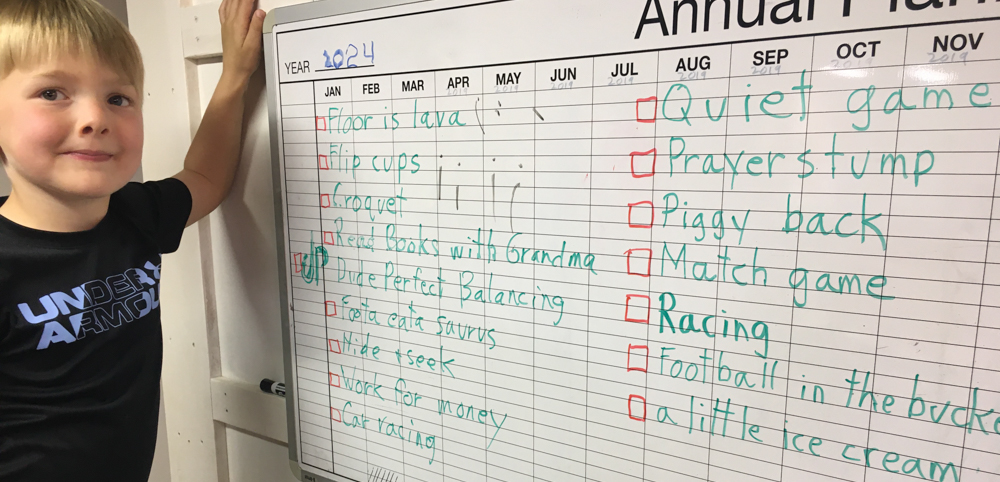 Annual
YEAR 2024
JAN FEB MAR APR MAY JUN JUL AUG SEP OCT NOV
2019 2019 2019 2019 2019 2019 2019
Floor is lava
Flip cups
Croquet
Read Books with Grandma
UP Dude Perfect Balancing
Foota eata saurus
Hide + seek
Work for money
Car racing
Quiet game
Prayer stump
Piggy back
Match game
Racing
Football in the
a little ice cream
UNDER
ARMOUR